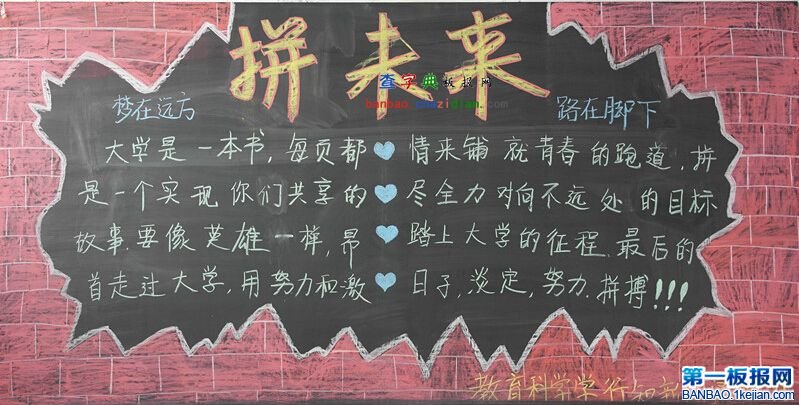 拼未来
查字典板报网
banbao.chazidian.com
梦在远方
路在脚下
大学是一本书,每页都
是一个实现你们共享的
故事.要像英雄一样,昂
首走过大学,用努力和激
情来铺就青春的跑道,拼
尽全力对向不远处的目标
踏上大学的征程.最后的
日子,淡定,努力.拼搏!!!
教育科学学行知
第一板报网
BANBAO.1kejian.com